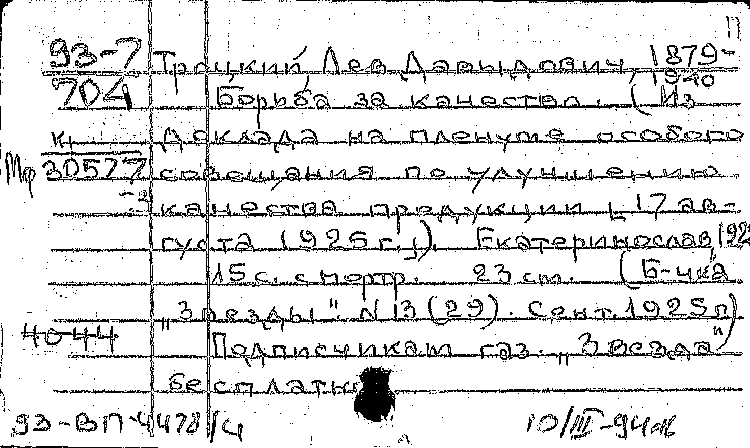 П
93-7 Троцкий, Лев Давыдович 1879-
704 1940
Борьба за качество. (Из
К1 доклада на пленуме особого
Мф 30577 совещания по улучшению
-3 качества продукции [17 ав-
густа 1925 г.]). Екатеринослав, 1925
15 с. с портр. 23 cm. (Б-чка
"Звезды" N 13 (29). Сент. 1925 г.)
4044 Подписчикам газ. "Звезда"
бесплатно
93-ВП-4478/4 10/III-94